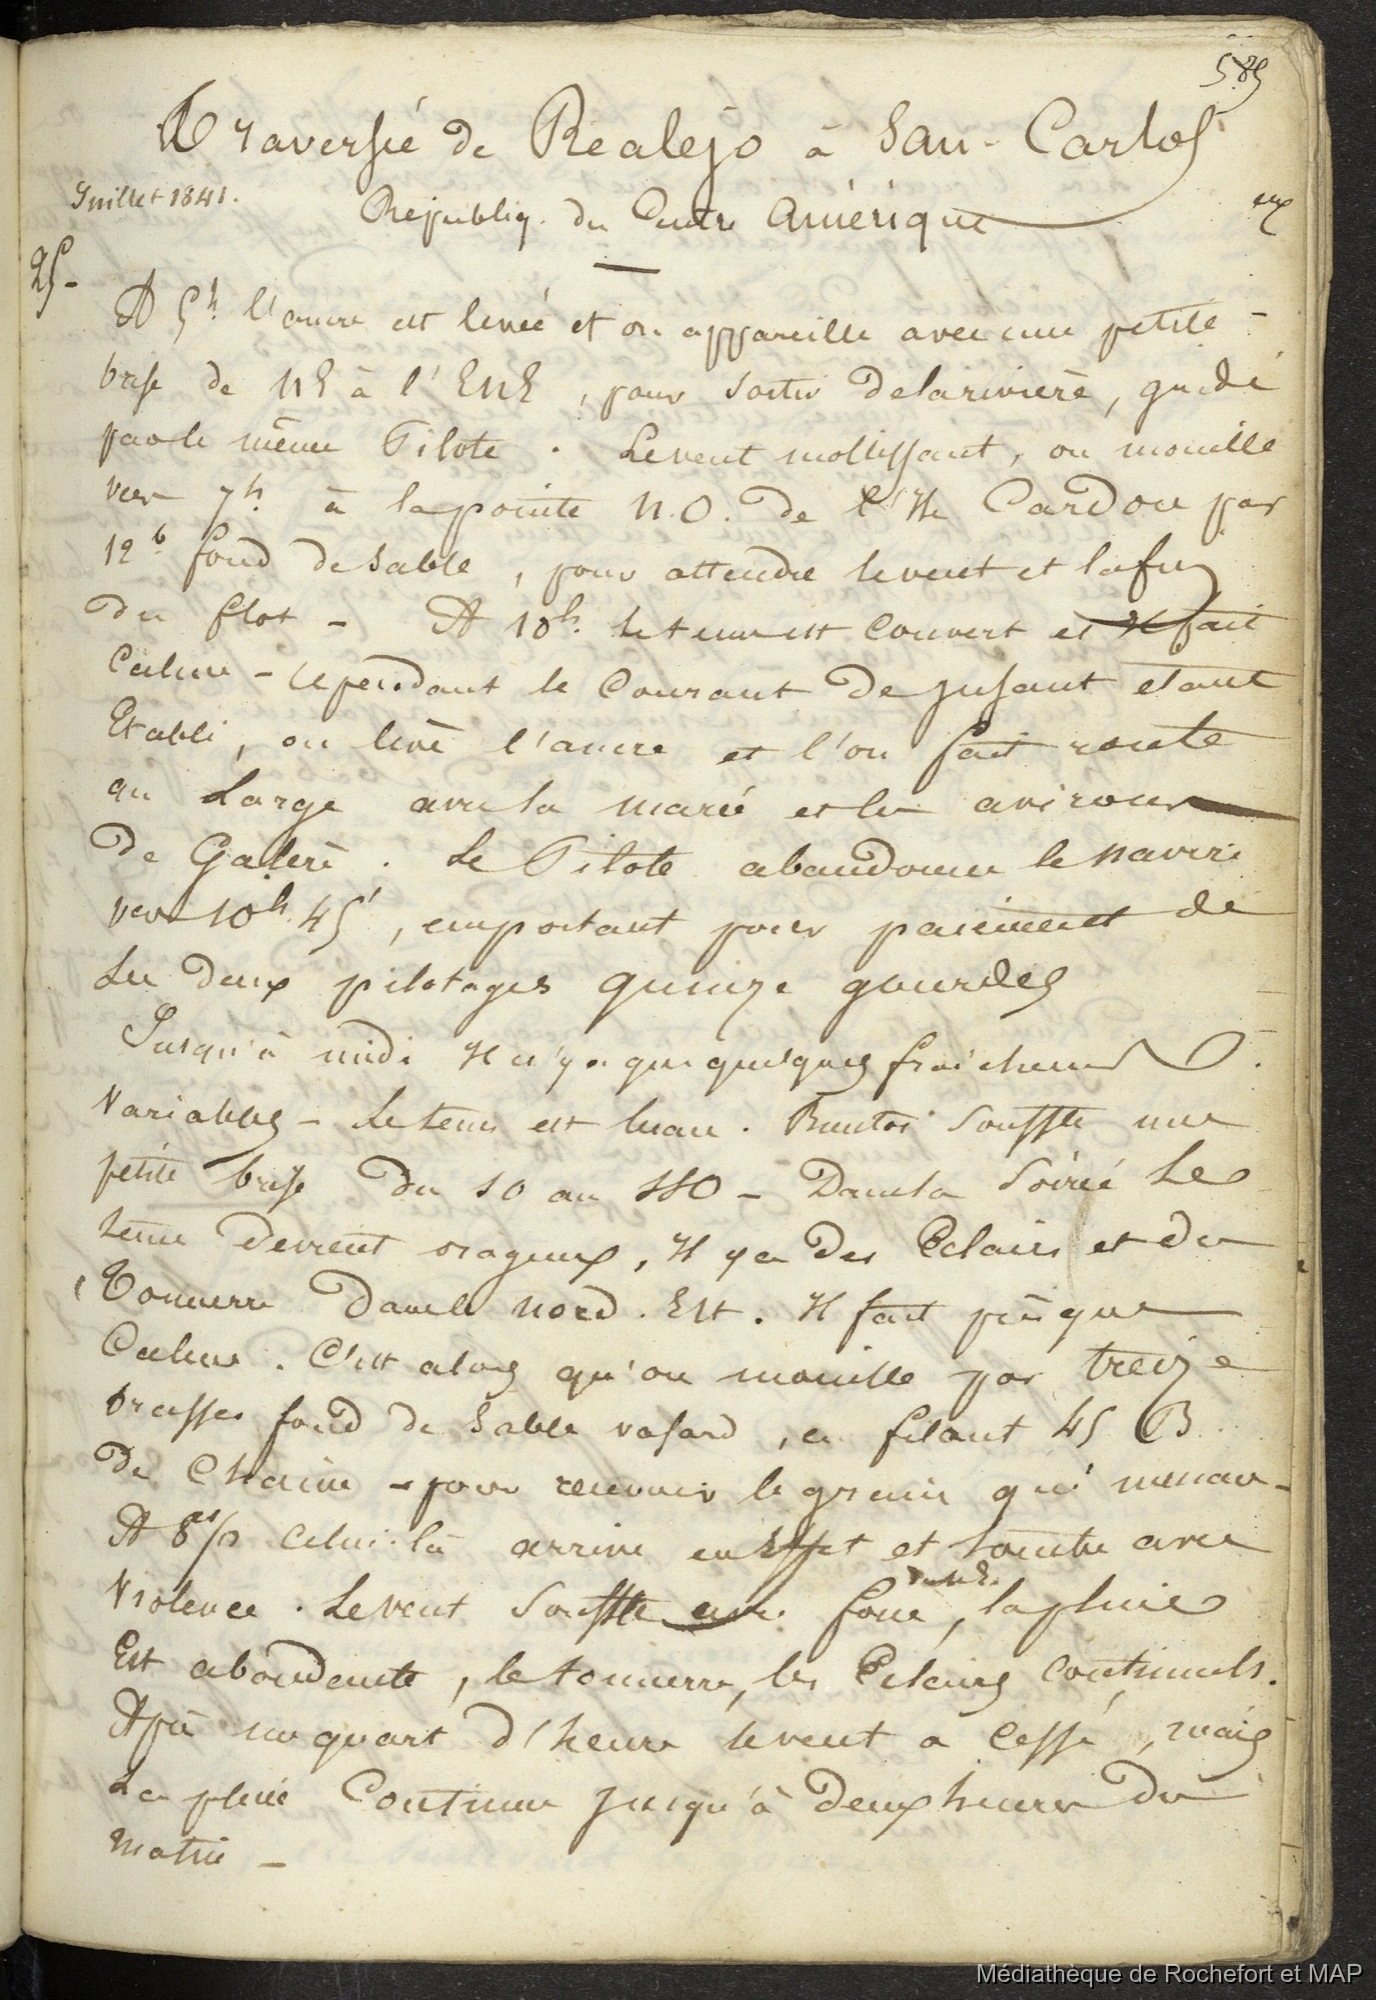 585
Traversée de Realejo à San-Carlos
Juillet 1841.
Républiq. du Centre Amérique
25-
A 5h. l'ancre est levée et on appareille avec une petite
brise de NE à l'ENE, pour sortir de la rivière, guidé
par le même Pilote. Le vent mollissant, on mouille
vers 7h. à la pointe N.O. de l'Ile Cardon par
12 b. fond de sable, pour attendre le vent et la fin
du flot - A 10h. le tems est couvert et il fait
Calme - cependant le Courant de jusant étant
Etabli, on lève l'ancre et l'on fait route
au Large avec la marée et les avirons
De Galère. Le Pilote abandonne le navire
vers 10h 45', emportant pour paiement de
Les deux pilotages quinze gourdes
Jusqu'à midi Il n'y a que quelques fraicheurs
Variables - Le tems est beau. Bientôt Souffle une
petite brise du SO au SSO - Dans la Soirée Le
tems devient orageux, Il y a des Eclairs et du
Tonnerre dans le Nord. Est. Il fait presque
Calme. C'est alors qu'on mouille par treize
brasses fond de Sable vasard, en filant 45 B
De Chaine - pour recevoir le grain qui menace -
A 8h 1/2 Celui-là arrive en Effet et tombe avec
Violence. Le vent Souffle avec force, la pluie
du NE.
Est abondante, le tonnerre, les Eclairs Continuels.
Après un quart d'heure le vent a Cessé, mais
La pluie Continue jusqu'à deux heures du
matin -
Médiathèque de Rochefort et MAP